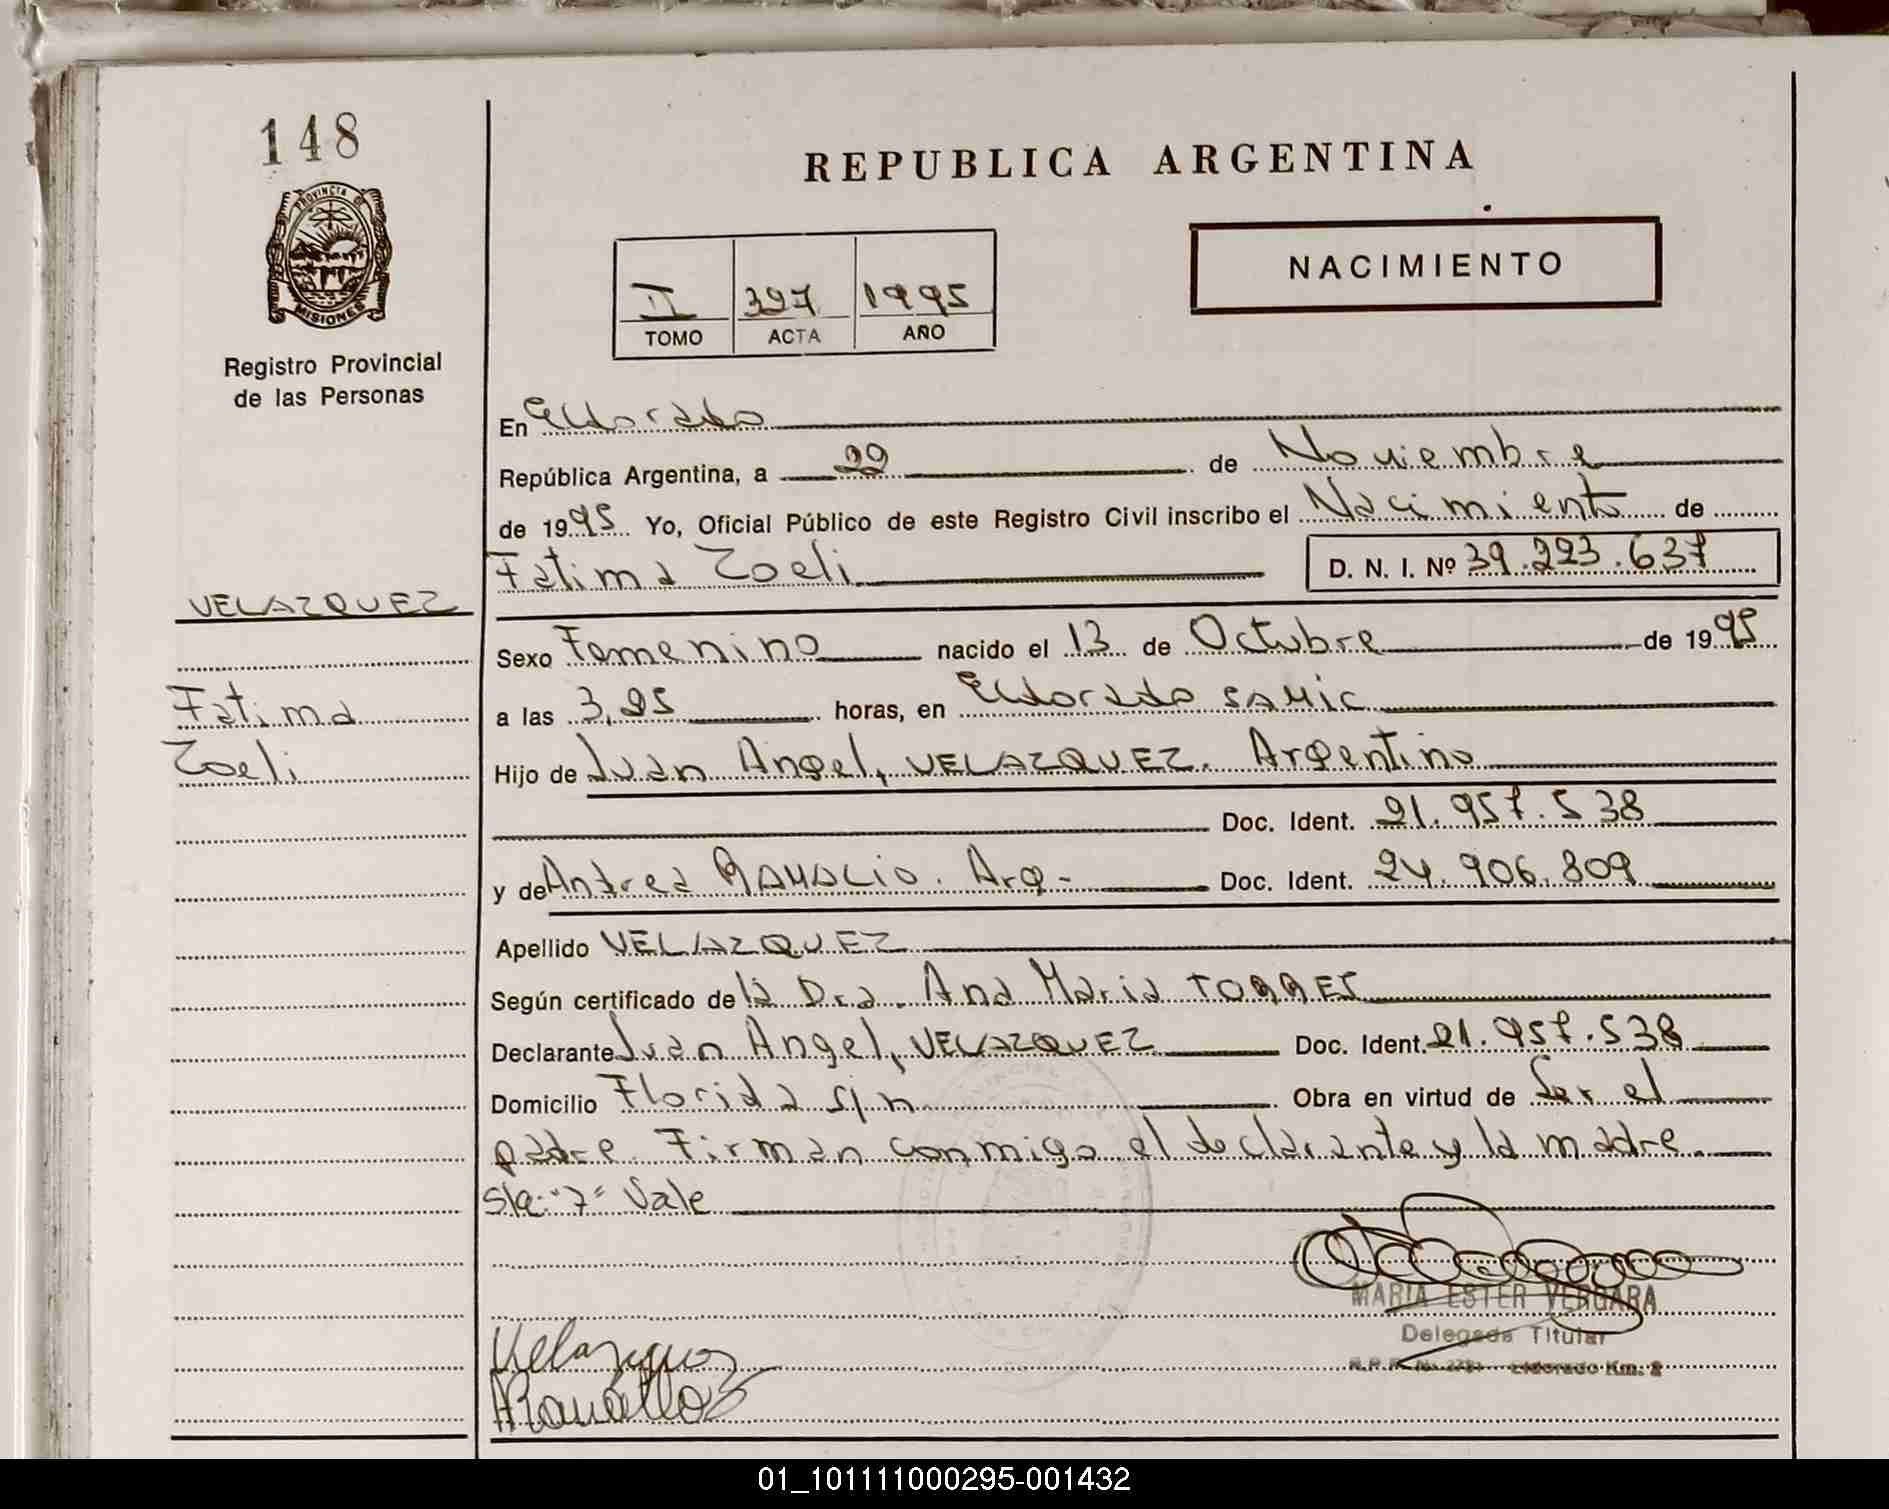 148
PROVINCIA DE
MISIONES
Registro Provincial
de las Personas
REPUBLICA ARGENTINA
NACIMIENTO
II 397 1995
TOMO ACTA AÑO
En Eldorado
República Argentina, a 22 de Noviembre
de 1995 Yo, Oficial Público de este Registro Civil inscribo el Nacimiento de
Fatima Zoeli D. N. I. Nº 39.223.637
VELAZQUEZ
Fatima
Zoeli
Sexo Femenino nacido el 13 de Octubre de 1995
a las 3,25 horas, en Eldorado SAMIC
Hijo de Juan Angel, VELAZQUEZ. Argentino
Doc. Ident. 21.957.538
y de Andrea RAMALIO. Arg.- Doc. Ident. 24.906.809
Apellido VELAZQUEZ
Según certificado de la Dra. Ana Maria TORRES
Declarante Juan Angel, VELAZQUEZ Doc. Ident. 21.957.538
Domicilio Florida s/n Obra en virtud de Ser el
padre. Firman conmigo el declarante y la madre.
S/R: "7" Vale
MARIA ESTER VERGARA
Delegada Titular
Eldorado Km. 2
Velazquez
01_101111000295-001432